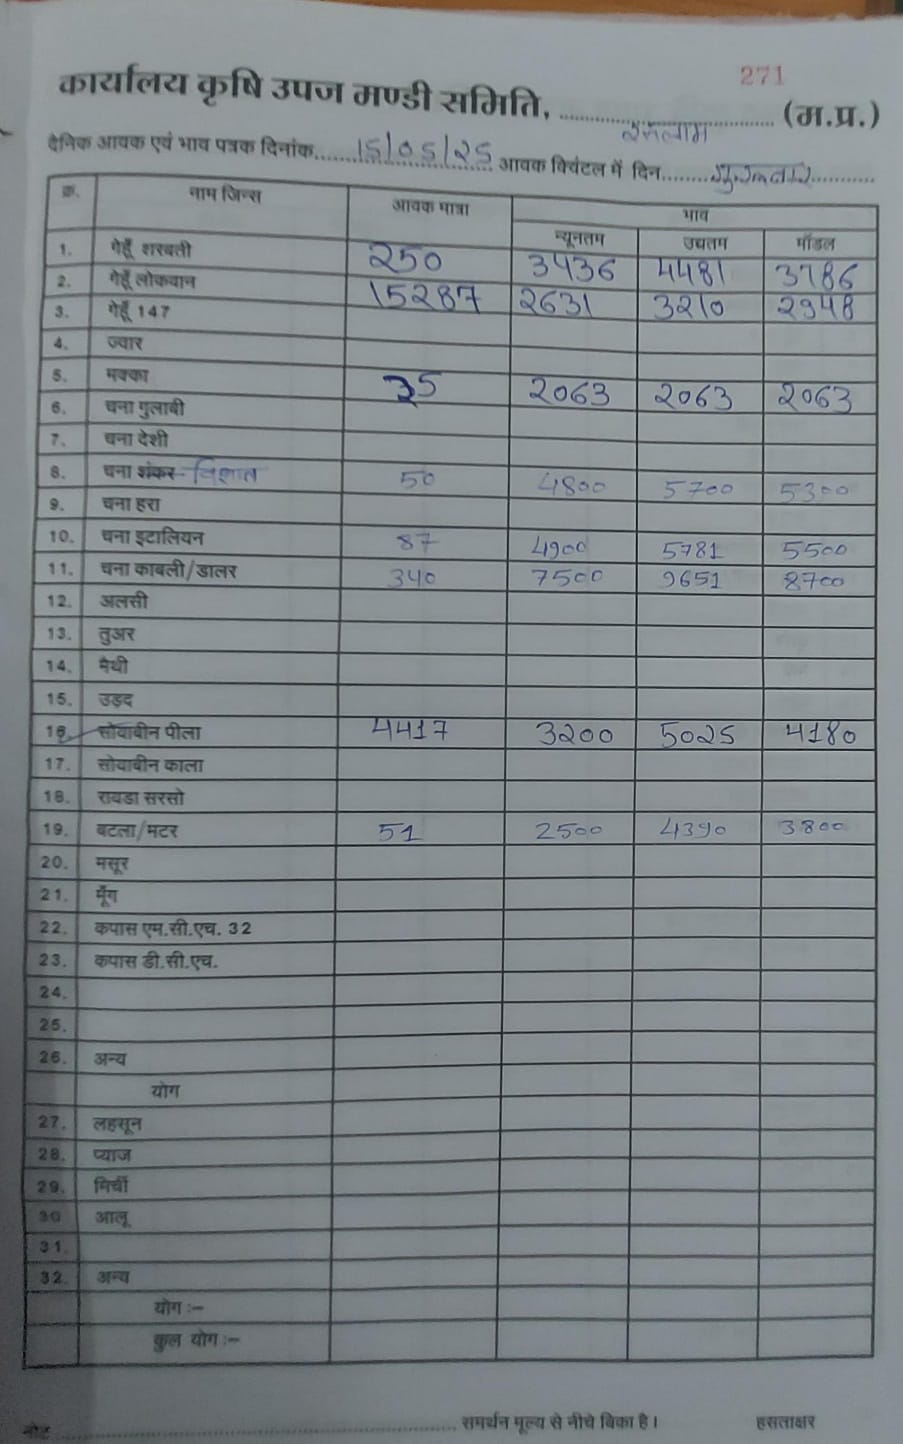 271
कार्यालय कृषि उपज मण्डी समिति, रतलाम (म.प्र.)
दैनिक आवक एवं भाव पत्रक दिनांक 15/05/25 आवक क्विंटल में दिन गुरूवार
क्र. नाम जिन्स आवक मात्रा भाव
न्यूनतम उच्चतम मॉडल
1. गेहूँ शरबती 250 3436 4481 3786
2. गेहूँ लोकवान 15287 2631 3210 2948
3. गेहूँ 147
4. ज्वार
5. मक्का 35 2063 2063 2063
6. चना गुलाबी
7. चना देशी
8. चना शंकर विशाल 50 4800 5700 5300
9. चना हरा
10. चना इटालियन 87 4900 5781 5500
11. चना काबली/डालर 340 7500 9651 8700
12. अलसी
13. तुअर
14. मैथी
15. उड़द
16. सोयाबीन पीला 4417 3200 5025 4180
17. सोयाबीन काला
18. रायडा सरसो
19. बटला/मटर 51 2500 4390 3800
20. मसूर
21. मूँग
22. कपास एम.सी.एच. 32
23. कपास डी.सी.एच.
24.
25.
26. अन्य
योग
27. लहसून
28. प्याज
29. मिर्ची
30 आलू
31.
32. अन्य
योग :-
कुल योग :-
नोट समर्थन मूल्य से नीचे बिका है। हसताक्षर